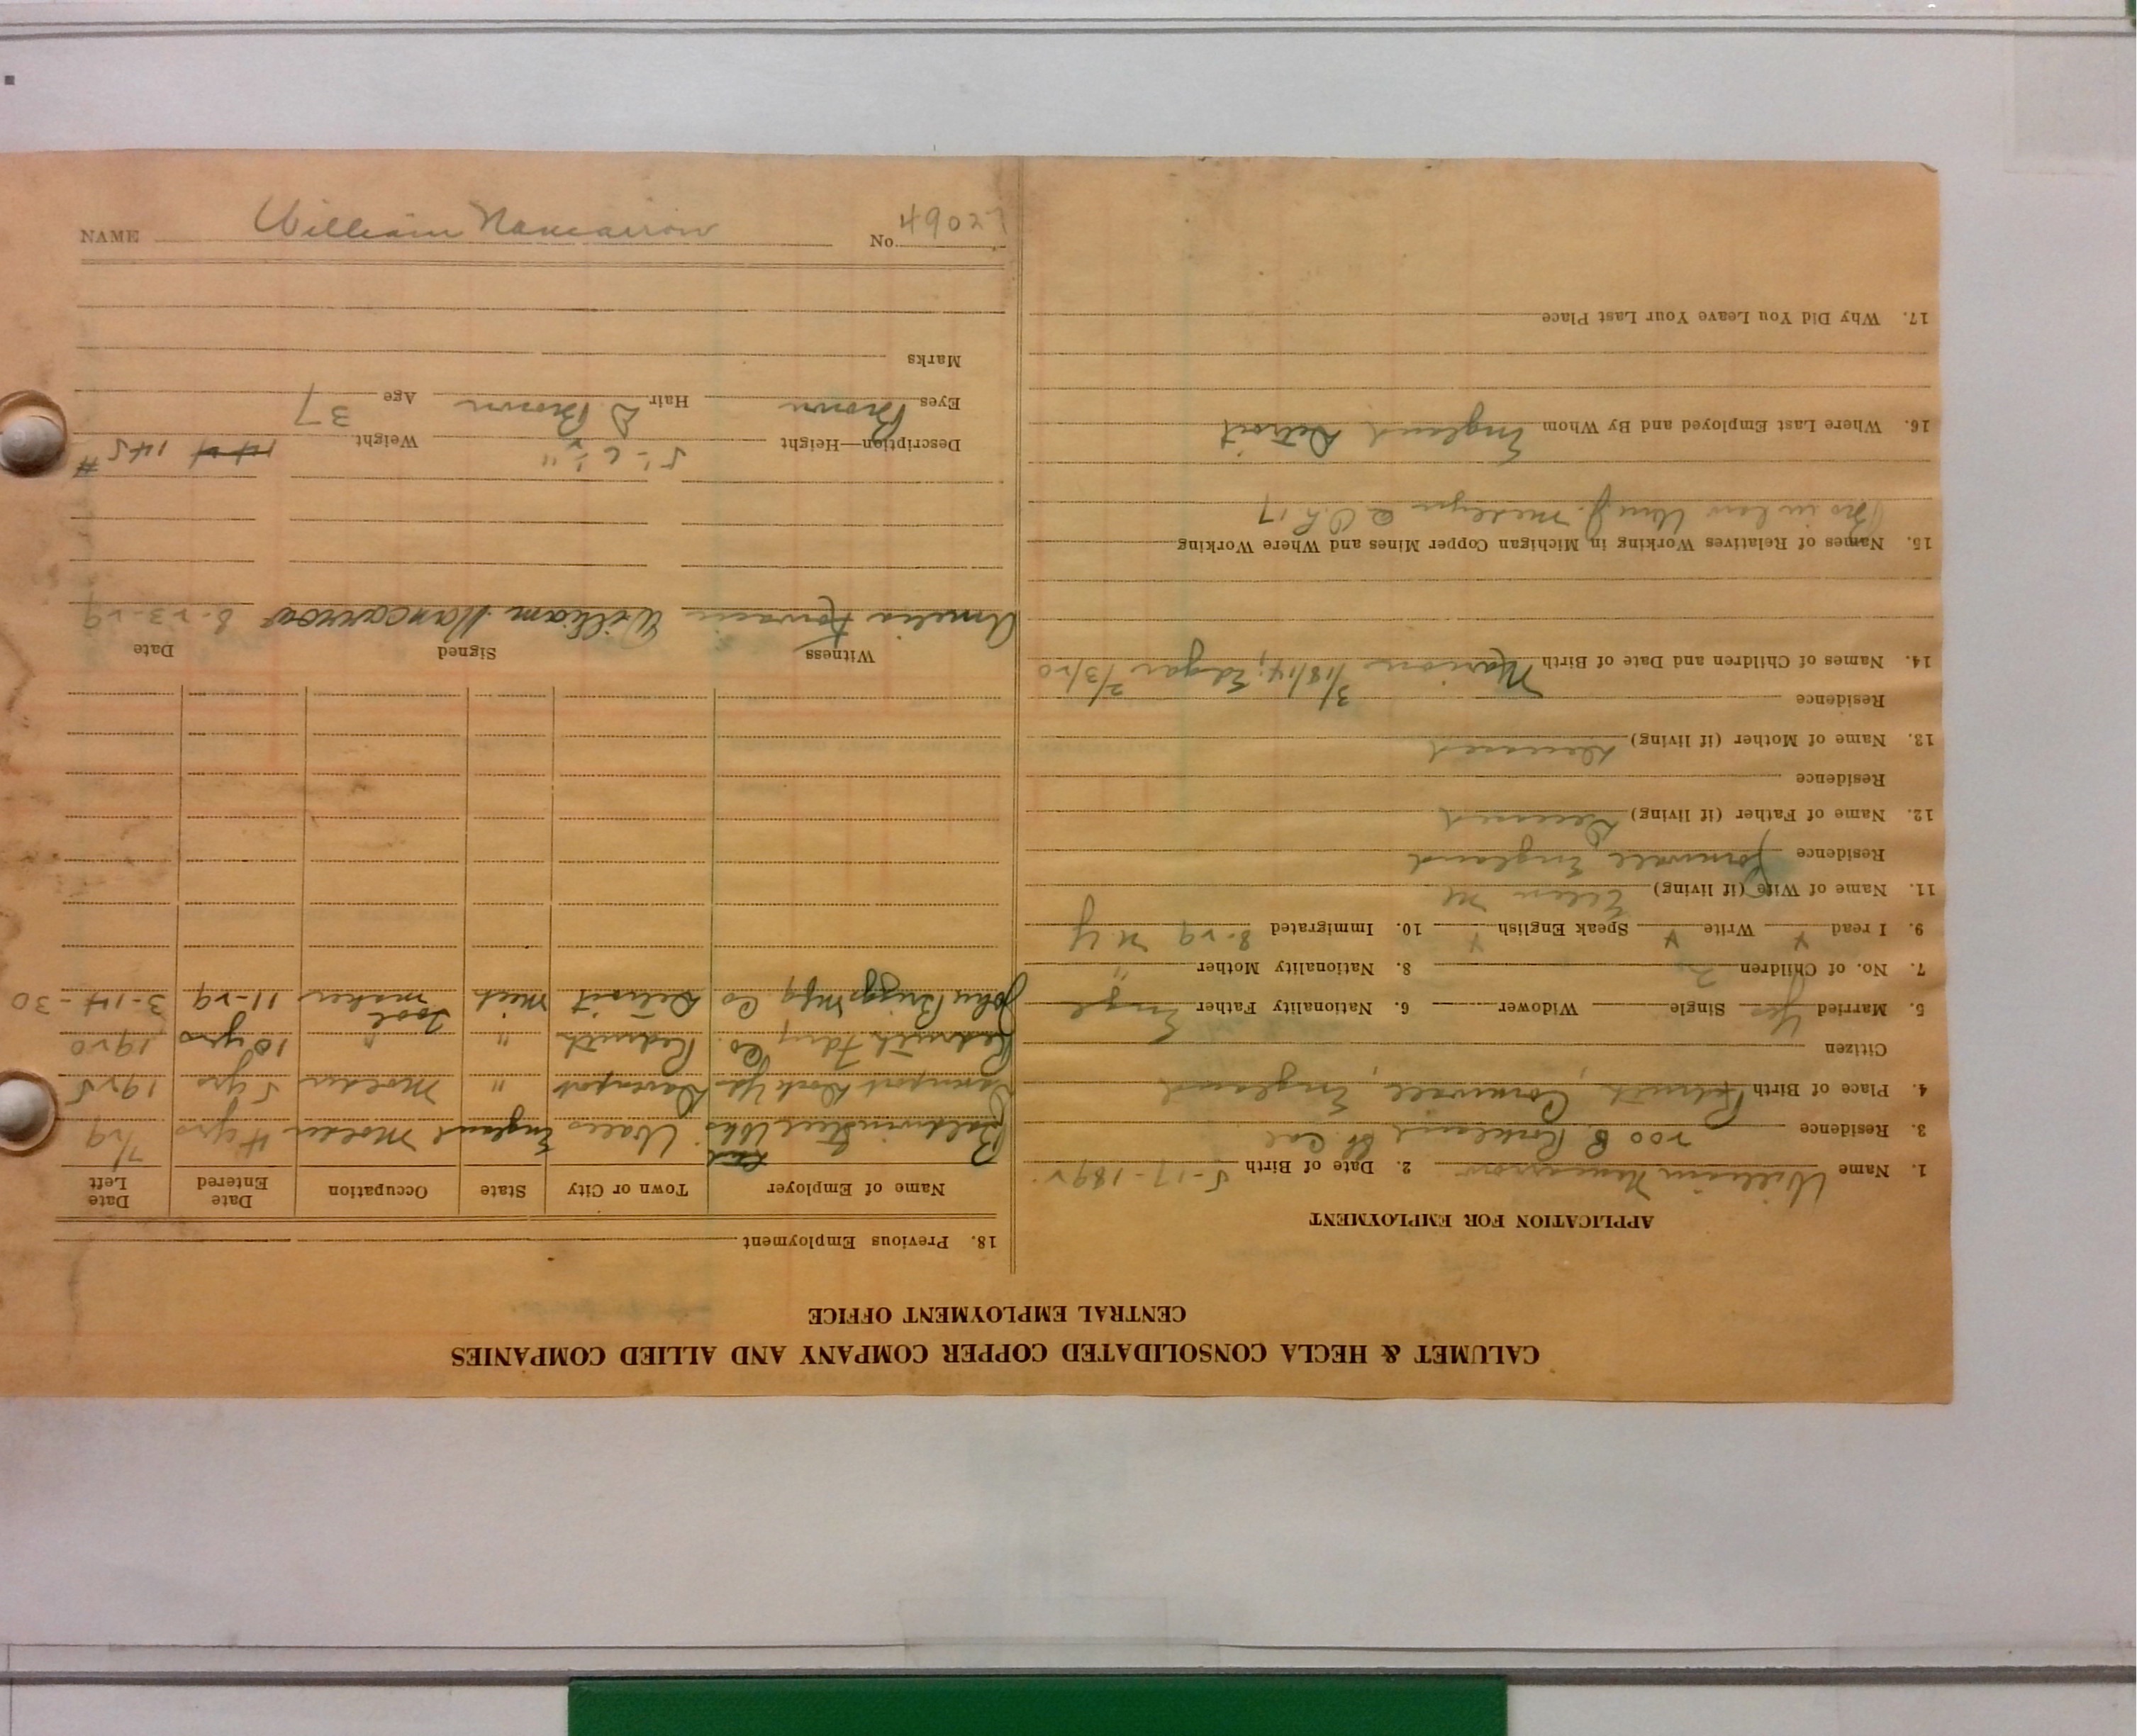 CALUMET & HECLA CONSOLIDATED COPPER COMPANY AND ALLIED COMPANIES
CENTRAL EMPLOYMENT OFFICE
APPLICATION FOR EMPLOYMENT
1. Name William Nancarrow 2. Date of Birth 5-17-1892
3. Residence 200 Rockland St. Cal
4. Place of Birth Redruth, Cornwall, England
Citizen
5. Married Yes Single Widower 6. Nationality Father Engl
7. No. of Children 2 8. Nationality Mother "
9. I read Y Write Y Speak English Y 10. Immigrated 8-29 N Y
11. Name of Wife (if living) Ellen M
Residence Cornwall England
12. Name of Father (if living) Deceased
Residence
13. Name of Mother (if living) Deceased
Residence
14. Names of Children and Date of Birth Marion 3/18/14; Edgar 2/3/20
15. Names of Relatives Working in Michigan Copper Mines and Where Working
Bro in law Wm J. @ 17
16. Where Last Employed and By Whom England Detroit
17. Why Did You Leave Your Last Place
18. Previous Employment
Name of Employer Town or City State Occupation Date Entered Date Left
Baldwin Steel Wks Wales England Molder 4 yrs 7/29
Devonport Dock Yds Devonport " Molder 5 yrs 1925
Redruth Fdry Co. Redruth " " 10 yrs 1920
John Briggs Mfg Co Detroit Mich Tool maker 11-29 3-14-30
Witness Signed Date
Amelia William Nancarrow 8-23-29
Description—Height 5'-6½" Weight 144 145 #
Eyes Brown Hair D Brown Age 37
Marks
NAME William Nancarrow No. 49027